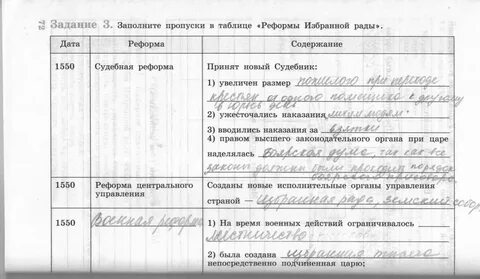 Задание 3. Заполните пропуски в таблице «Реформы Избранной рады».
Дата Реформа Содержание
1550 Судебная реформа Принят новый Судебник:
1) увеличен размер пожилого при переходе
крестьян от одного помещика к другому
в Юрьев день
2) ужесточались наказания лихим людям
3) вводились наказания за взятки
4) правом высшего законодательного органа при царе
наделялась Боярская дума, так как все
законы должны были проходить порядок
боярского приговора
1550 Реформа центрального управления Созданы новые исполнительные органы управления
страной — избранная рада, земский собор
1550 Военная реформа 1) На время военных действий ограничивалось
местничество
2) была создана избранная тысяча
непосредственно подчинённая царю;